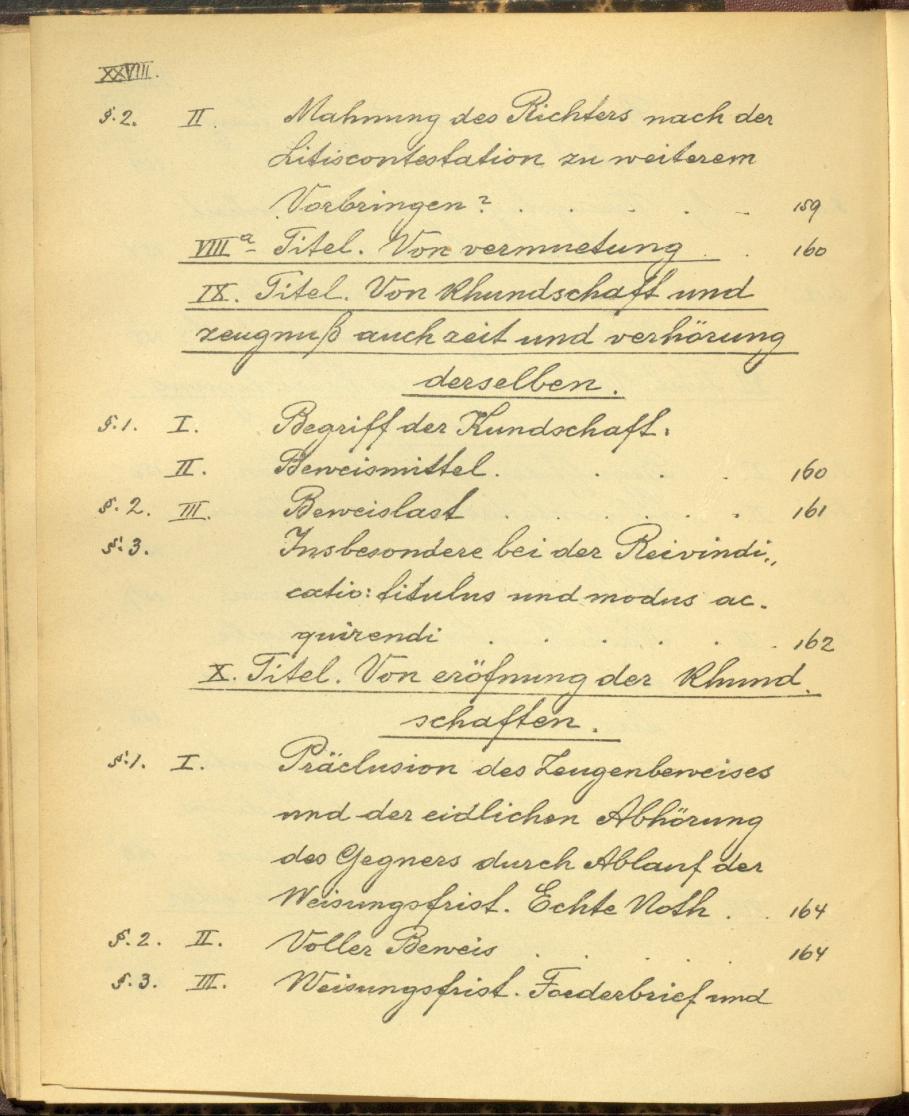 XXVIII.
§. 2. II. Mahnung des Richters nach der
Litiscontestation zu weiterem
Vorbringen? . . . . . 159
VIII a. Titel. Von vermuetung . . 160
IX. Titel. Von khundschaft und
zeugnuß auch zeit und verhörung
derselben.
§. 1. I. Begriff der Kundschaft.
II. Beweismittel. . . . . 160
§. 2. III. Beweislast . . . . . 161
§. 3. Insbesondere bei der Reivindi„
catio: titulus und modus ac-
quirendi . . . . . . 162
X. Titel. Von eröfnung der khund-
schaften.
§. 1. I. Präclusion des Zeugenbeweises
und der eidlichen Abhörung
des Gegners durch Ablauf der
Weisungsfrist. Echte Noth . . 164
§. 2. II. Voller Beweis . . . . . 164
§. 3. III. Weisungsfrist. Foederbrief und